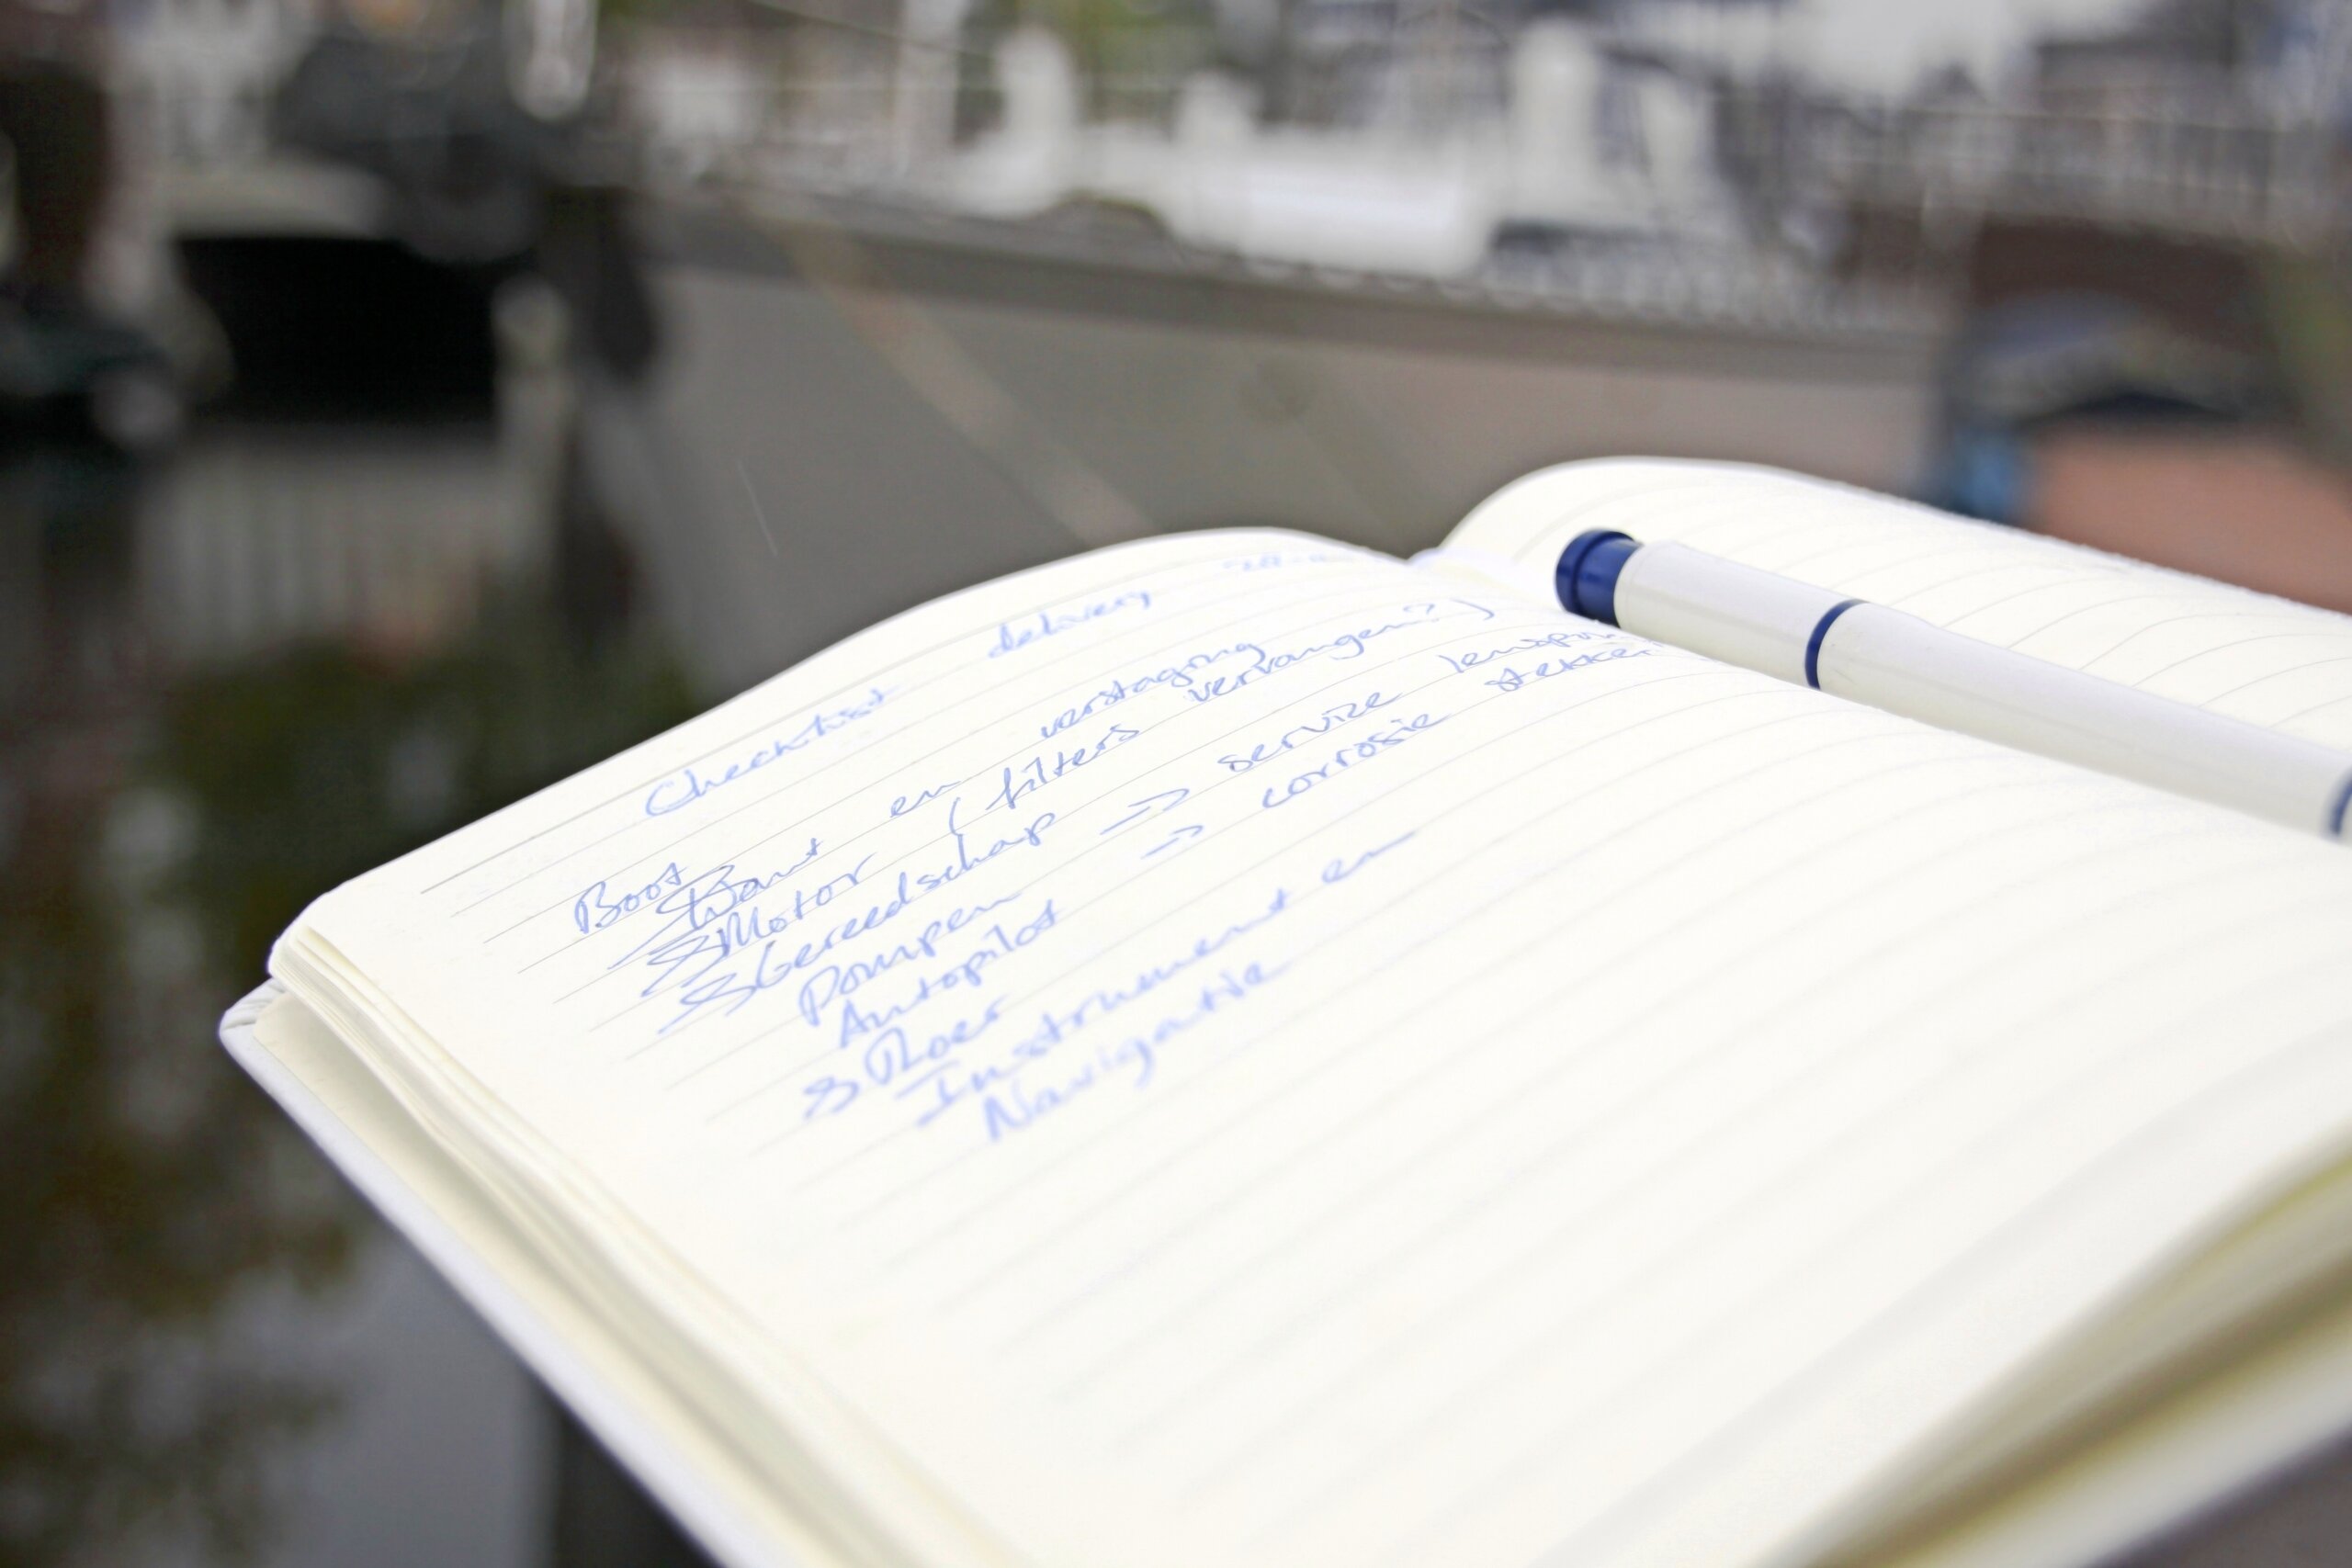 Checklist delivery
Boot
Want en verstaging
Motor (filters vervangen?)
Gereedschap
Pompen → service
Autopilot → corrosie stekker
Roer
Instrument en
Navigatie